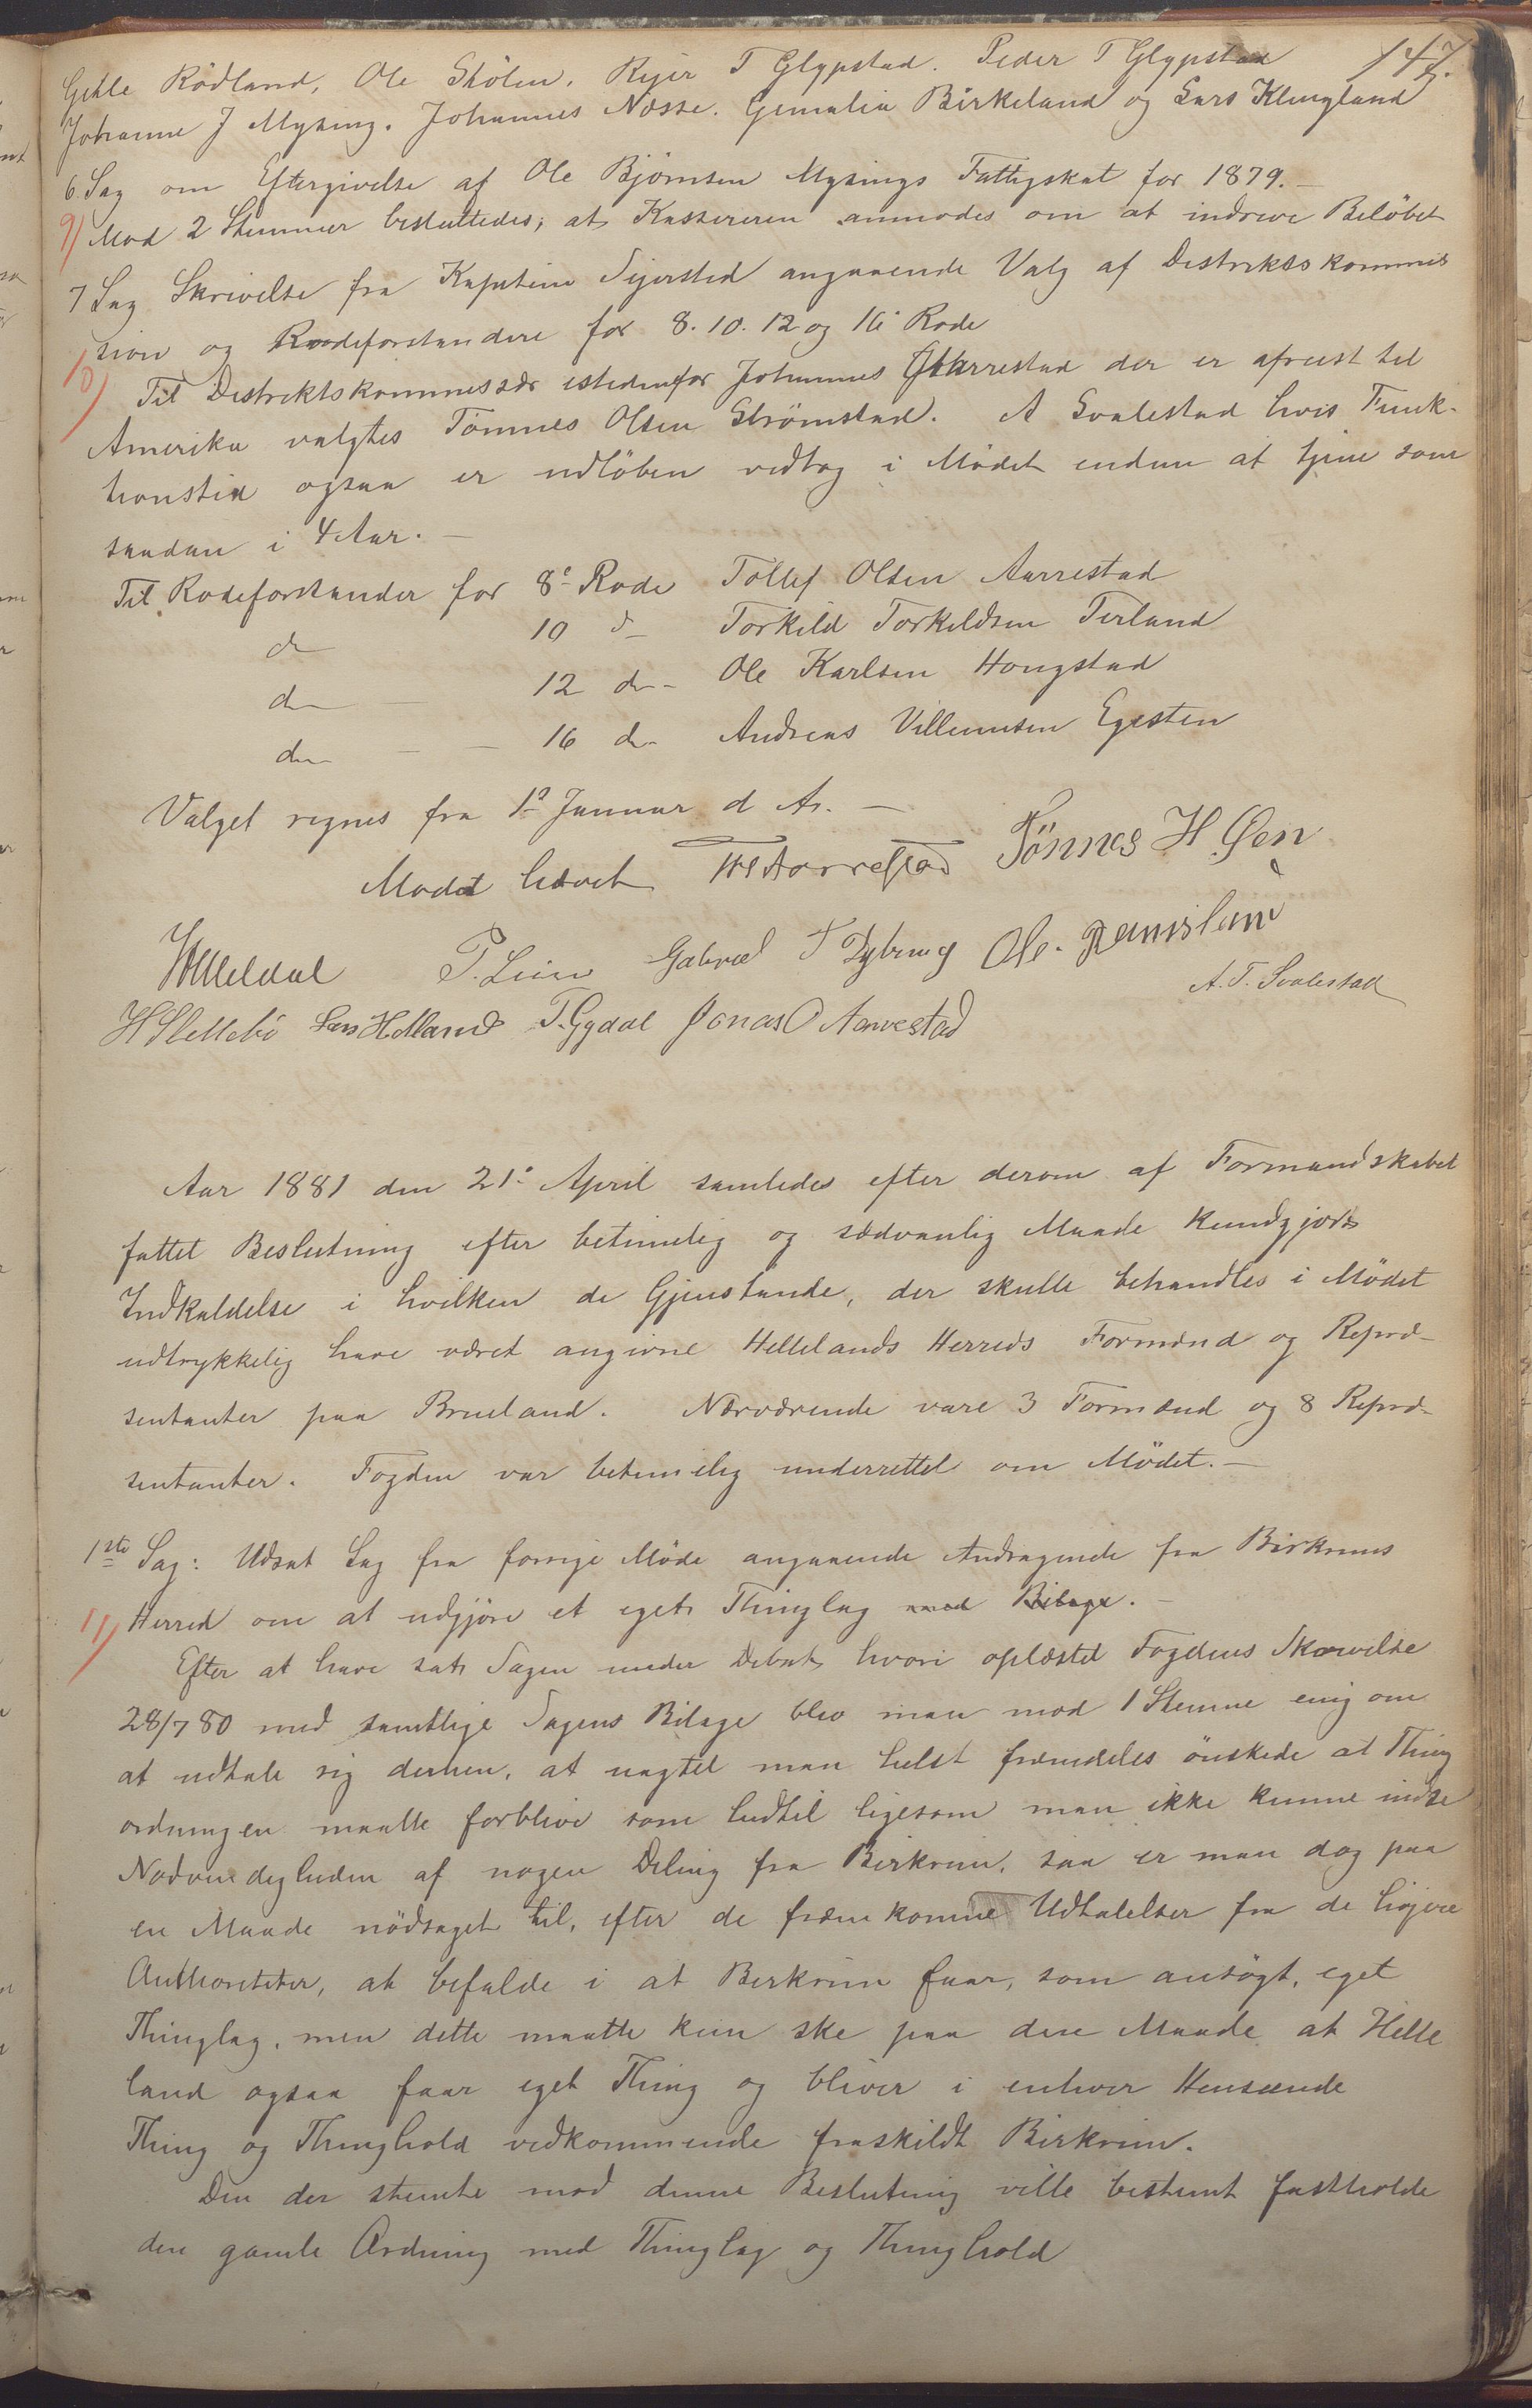 147.
Gitle Rödland, Ole Skölen. Rejer T Glypstad. Peder T Glypstad
Johanne J Mysing. Johannes Nesse. Gemalia Birkeland og Lars Klungland
6 Sag om Eftergivelse af Ole Bjørnsen Mysings Fattigskat for 1879.—
9) Mod 2 Stemmer besluttedes, at Kassereren anmodes om at inddrive Beløbet
7 Sag Skrivelse fra Kaptein Sejersted angaaende Valg af Distriktskommis
sion og Rodeforstandere for 8. 10. 12 og 16 Rode
10) Til Distriktskommissær istedenfor Johannes Aarrestad der er afreist til
Amerika valgtes Tönnes Olsen Strömstad. A Svalestad hvis Funk-
tionstid ogsaa er udløben vedtog i Mödet endnu at tjene som
saadan i 4 Aar.—
Til Rodeforstander for 8de Rode Tollef Olsen Aarrestad
do 10 do Torkild Torkildsen Terland
do — 12 do — Ole Karlsen Hougstad
do — — 16 do Andreas Villumsen Egesten
Valget regnes fra 1ste Januar d Ar.—
Mödet hævet HAarrestad Tönnes H. Øen
P. Lein Gabriel T Dybing Ole Ramsland
A. T. Svalestad
H Slettebö Lars Helland T. Gydal Jonas O Aarrestad
Aar 1881 den 21de April samledes efter derom af Formandskabet
fattet Beslutning efter betimelig og sædvanlig Maade kundgjort
Indkaldelse i hvilken de Gjenstande, der skulle behandles i Mödet
udtrykkelig have været angivne Hellelands Herreds Formænd og Repræ-
sentanter paa Brueland. Nærværende vare 3 Formænd og 8 Repræ-
sentanter. Fogden var betimelig underrettet om Mödet.—
1ste Sag: Udsat Sag fra forrige Möde angaaende Andragende fra Birkrems
11) Herred om at udgjøre et eget Thinglag med Bilage.—
Efter at have sat Sagen under Debat hvori oplæstes Fogdens Skrivelse
28/7 80 med samtlige Sagens Bilage blev man mod 1 Stemme enig om
at udtale sig derhen, at uagtet man helst fremdeles önskede at Thing
ordningen maatte forblive som hidtil ligesom man ikke kunne indse
Nødvendigheden af nogen Deling fra Birkrem, saa er man dog paa
en Maade nödsaget til, efter de fremkomne Udtalelser fra de höjere
Authoriteter, at befalde i at Birkrem faar, som ansögt, eget
Thinglag, men dette maatte kun ske paa den Maade at Helle
land ogsaa faar eget Thing og bliver i enhver Henseende
Thing og Thinghold vedkommende fraskildt Birkrem.
Den der stemte mod denne Beslutning ville bestemt fastholde
den gamle Ordning med Thinglag og Thinghold